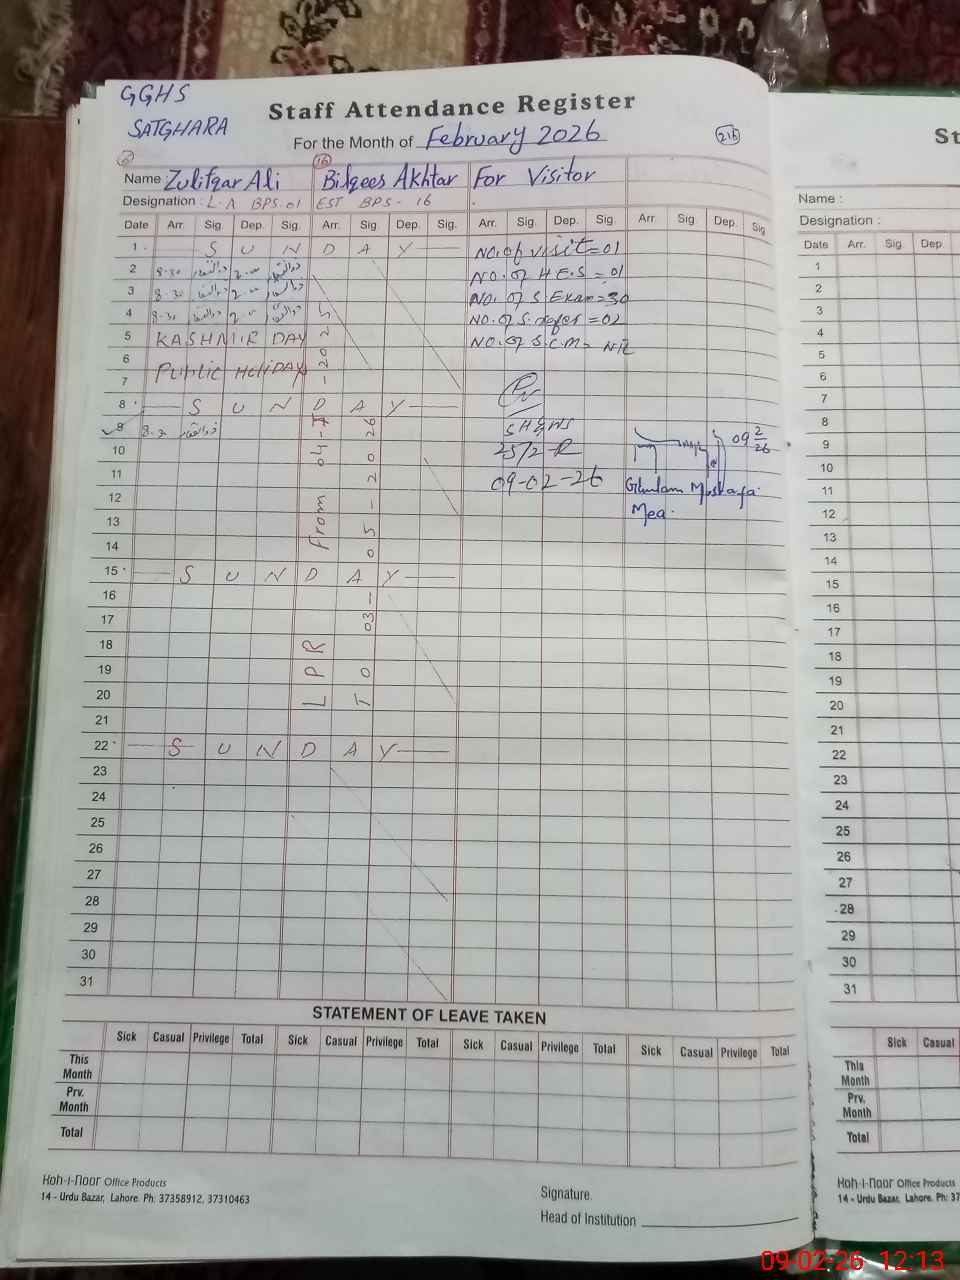 GGHS
SATGHARA
Staff Attendance Register
For the Month of February 2026
216
Name Zulifqar Ali
16
Bilqees Akhtar
For Visitor
Designation : L.A BPS.01
EST BPS-16
Date Arr. Sig. Dep. Sig. Arr. Sig. Dep. Sig. Arr. Sig. Dep. Sig. Arr. Sig Dep. Sig
1 SUNDAY
2 8-30 ذوالفقار 2-00 ذوالفقار
3 8-30 ذوالفقار 2-00 ذوالفقار
4 8-30 ذوالفقار 2-00 ذوالفقار
5 KASHMIR DAY
6 Public HoliDAY
7
8 SUNDAY
9 8-30 ذوالفقار
10
11
12
13
14
15 SUNDAY
16
17
18
19
20
21
22 SUNDAY
23
24
25
26
27
28
29
30
31
LPR From 04-
-2025
TO 03-05-2026
NO. of visit = 01
NO. of H.E.S = 01
NO. of S Exam = 30
NO. of S. refer = 02
NO. of S.C.M = NIL
SH&NS
25/2-R
09-02-26
09 2/26
Ghulam Mustafa
Mea.
STATEMENT OF LEAVE TAKEN
Sick Casual Privilege Total Sick Casual Privilege Total Sick Casual Privilege Total Sick Casual Privilege Total
This Month
Prv. Month
Total
Koh-i-noor Office Products
14 - Urdu Bazar, Lahore. Ph: 37358912, 37310463
Signature.
Head of Institution
St
Name :
Designation :
Date Arr. Sig. Dep
1
2
3
4
5
6
7
8
9
10
11
12
13
14
15
16
17
18
19
20
21
22
23
24
25
26
27
28
29
30
31
Sick Casual
This Month
Prv. Month
Total
Koh-i-noor Office Products
14 - Urdu Bazar, Lahore. Ph: 37
09-02-26 12:13